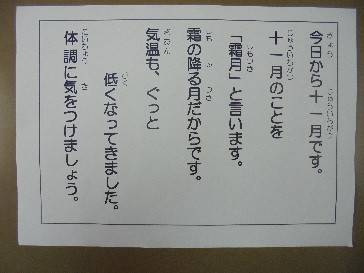 今日から十一月です。
十一月のことを
「霜月」と言います。
霜の降る月だからです。
気温も、ぐっと
低くなってきました。
体調に気をつけましょう。